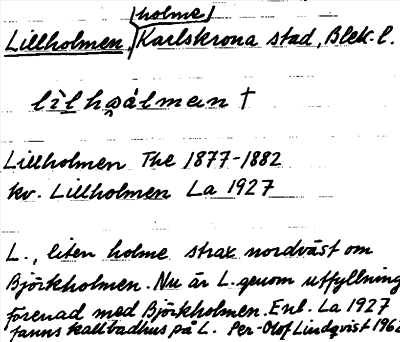 holme
Lillholmen, Karlskrona stad, Blek. l.
lìlho̭álmen †
Lillholmen The 1877-1882
kv. Lillholmen La 1927
L., liten holme strax nordväst om
Björkholmen. Nu är L. genom utfyllning
förenad med Björkholmen. Enl. La 1927
fanns kallbadhus på L. Per-Olof Lindqvist 1962